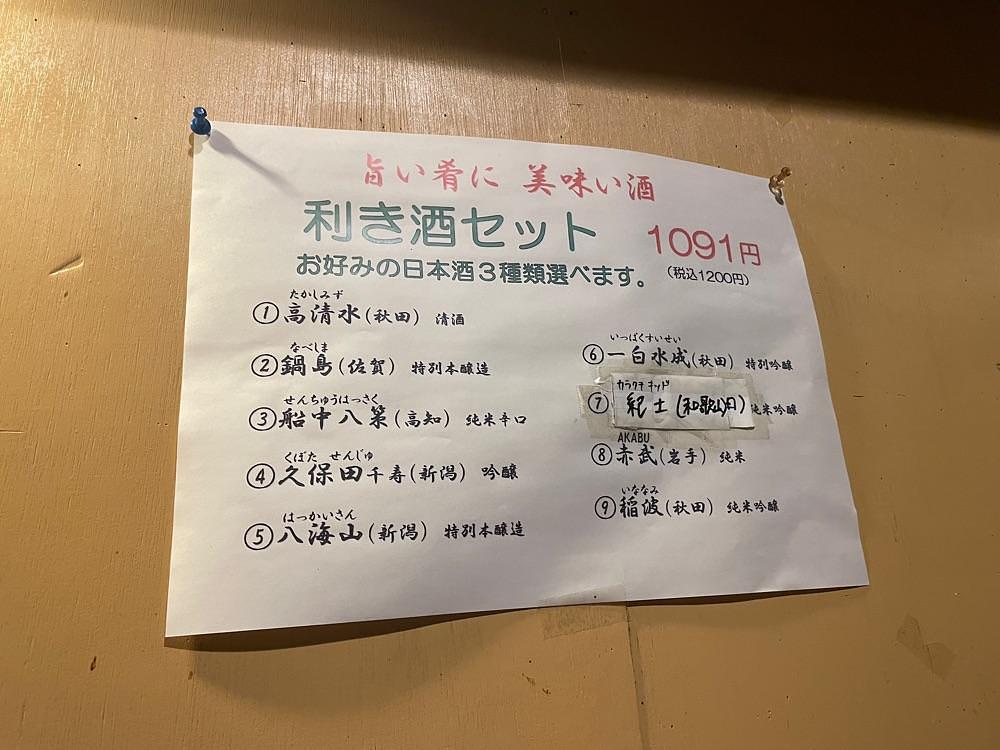 旨い肴に 美味い酒
利き酒セット 1091円
お好みの日本酒3種類選べます。 (税込1200円)
たかしみず
①高清水(秋田) 清酒
なべしま
②鍋島(佐賀) 特別本醸造
せんちゅうはっさく
③船中八策(高知) 純米辛口
くぼた せんじゅ
④久保田千寿(新潟) 吟醸
はっかいさん
⑤八海山(新潟) 特別本醸造
いっぱくすいせい
⑥一白水成(秋田) 特別吟醸
⑦紀土(和歌山) 純米吟醸
AKABU
⑧赤武(岩手) 純米
いななみ
⑨稲波(秋田) 純米吟醸